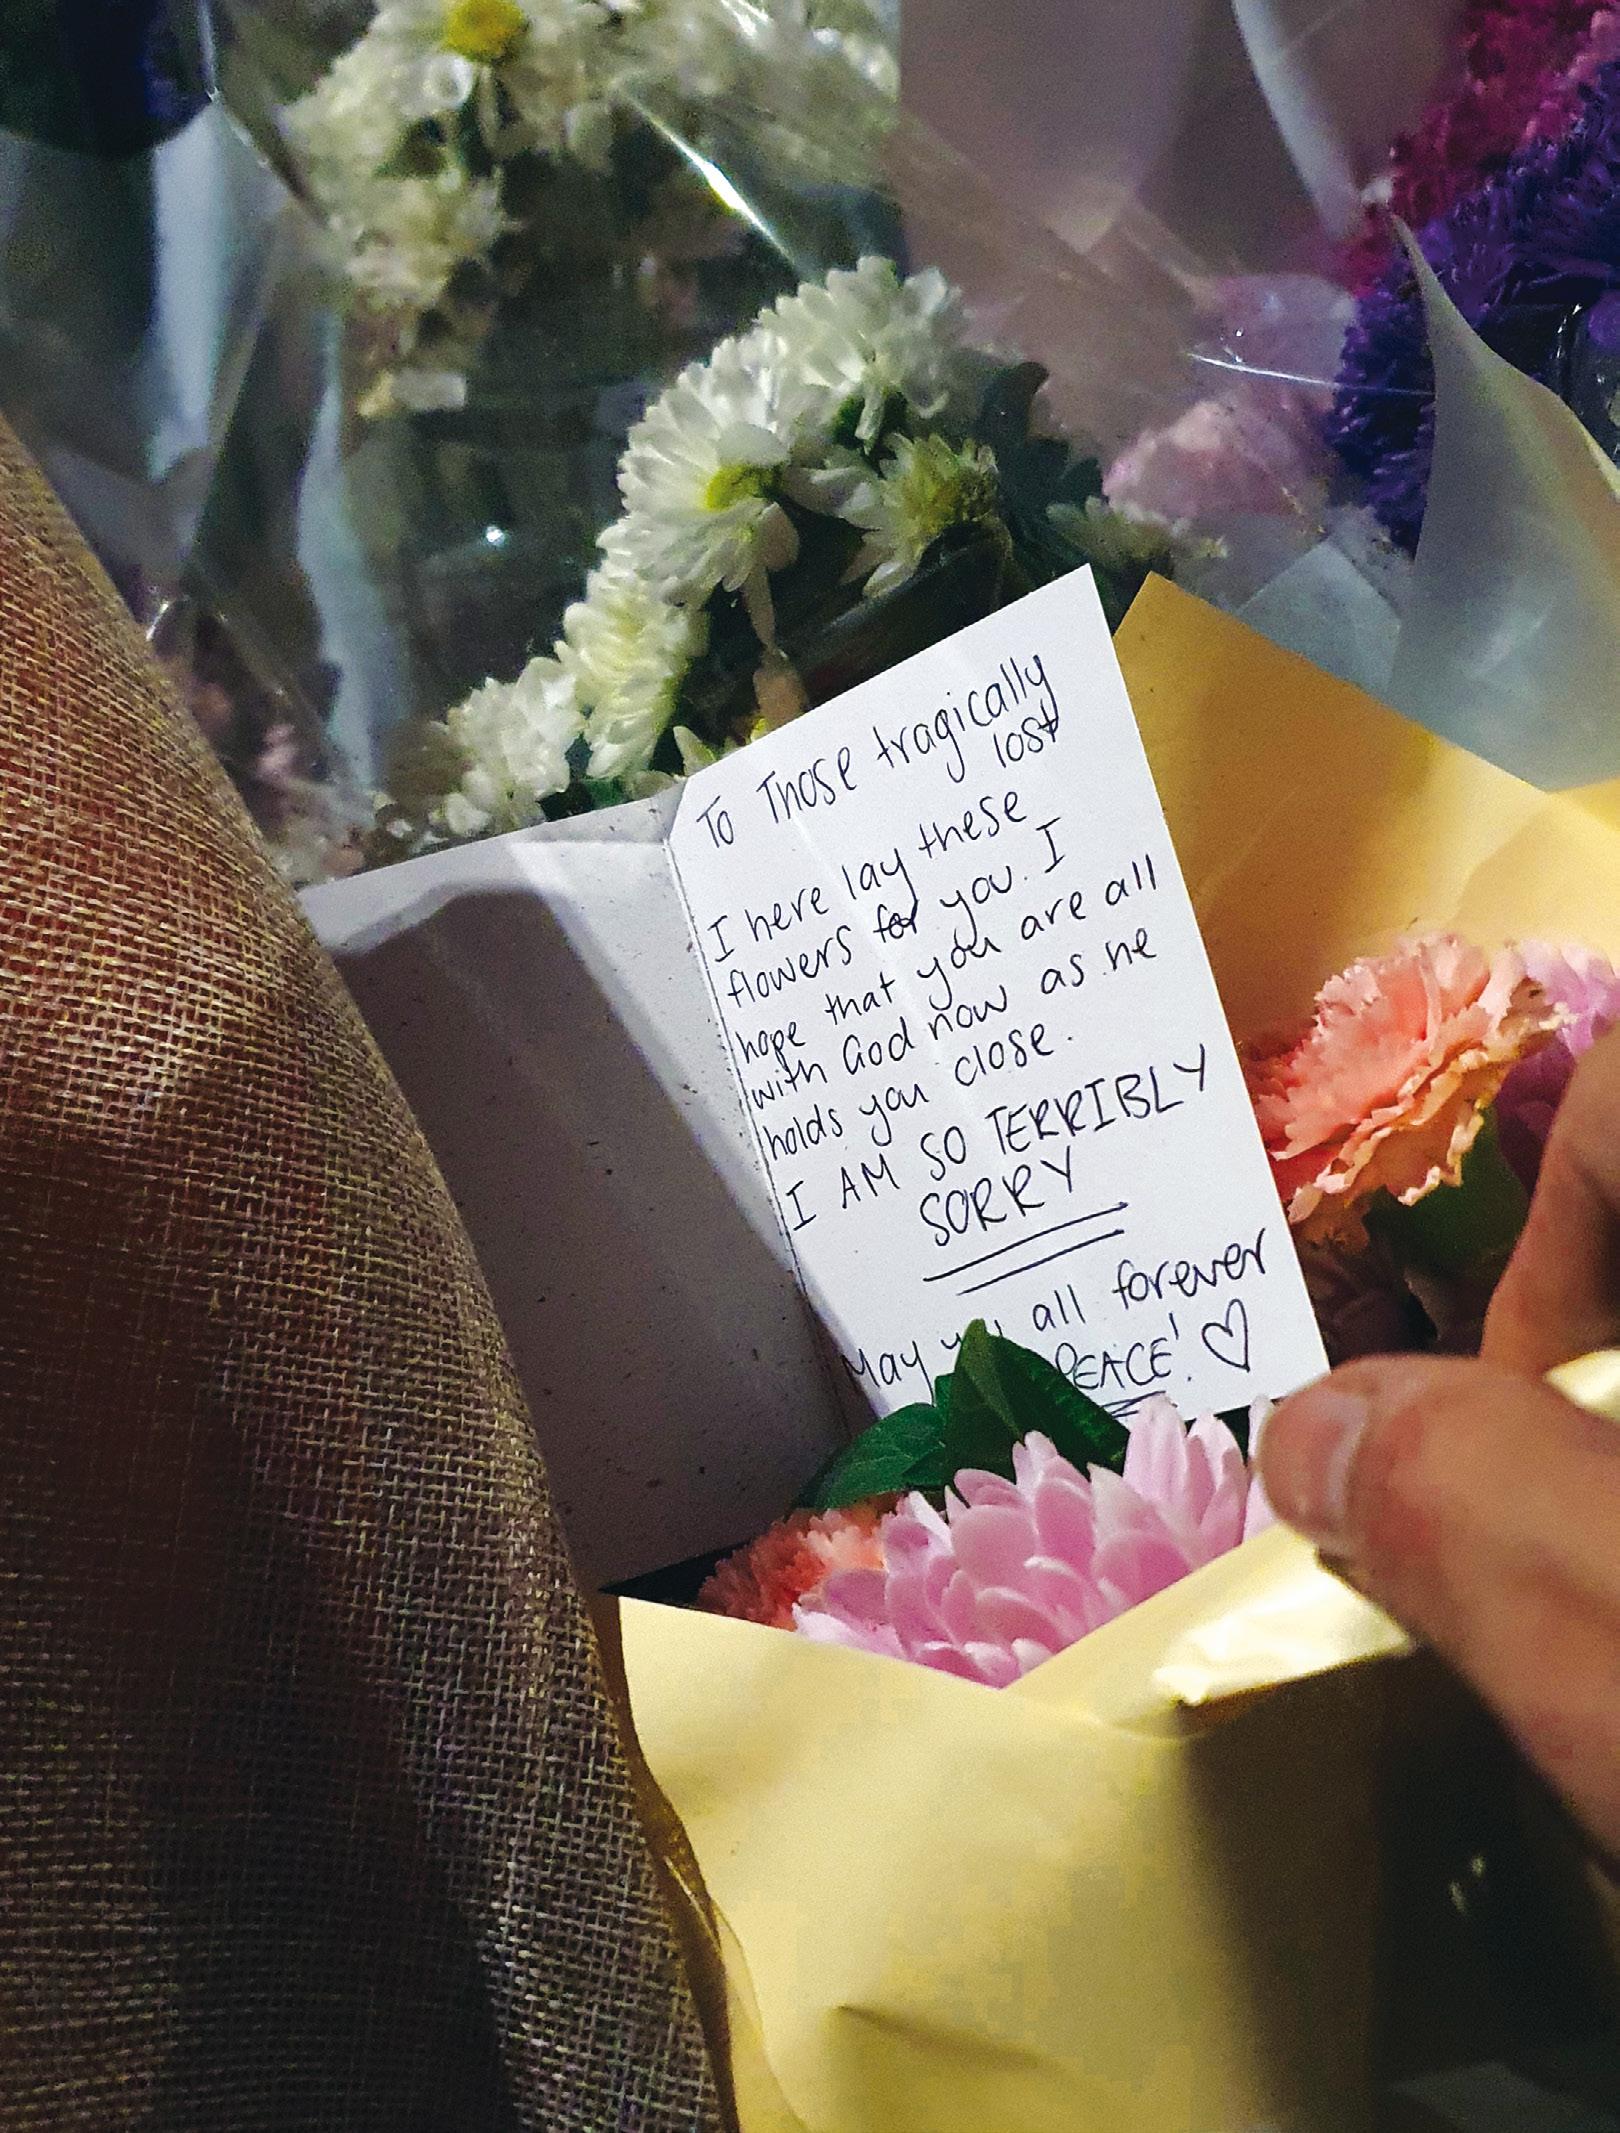 To Those tragically
lost
I here lay these
flowers for you. I
hope that you are all
with God now as he
holds you close.
I AM SO TERRIBLY
SORRY
May all forever
PEACE! ♡